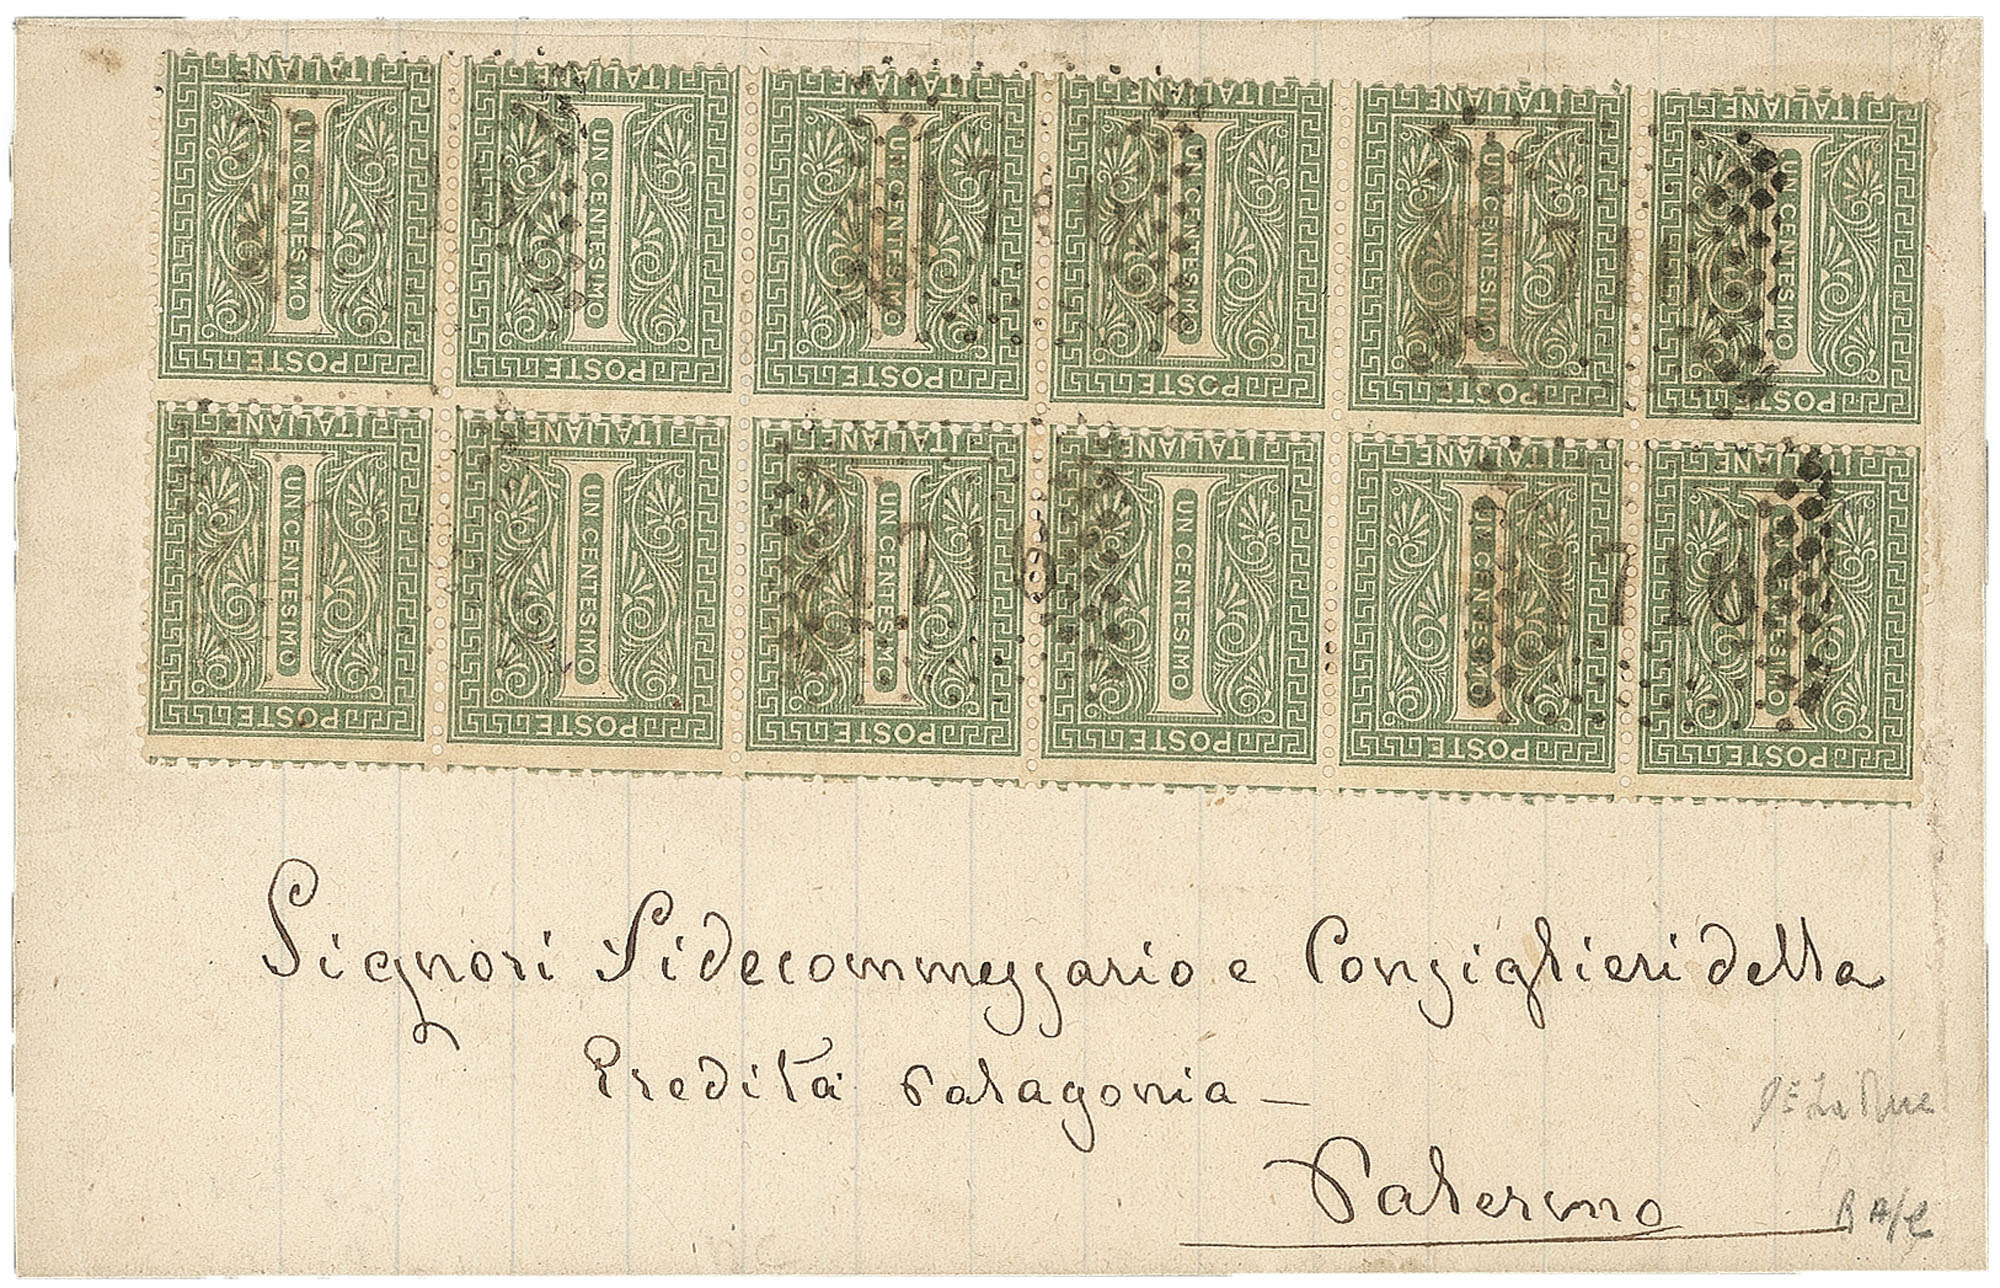 ITALIANE ITALIANE ITALIANE ITALIANE ITALIANE ITALIANE
UN CENTESIMO UN CENTESIMO UN CENTESIMO UN CENTESIMO UN CENTESIMO UN CENTESIMO
POSTE POSTE POSTE POSTE POSTE POSTE
ITALIANE ITALIANE ITALIANE ITALIANE ITALIANE ITALIANE
UN CENTESIMO UN CENTESIMO UN CENTESIMO UN CENTESIMO UN CENTESIMO UN CENTESIMO
POSTE POSTE POSTE POSTE POSTE POSTE
1716 1716
Signori Fidecommessario e Consiglieri della
Eredità Palagonia _
Palermo